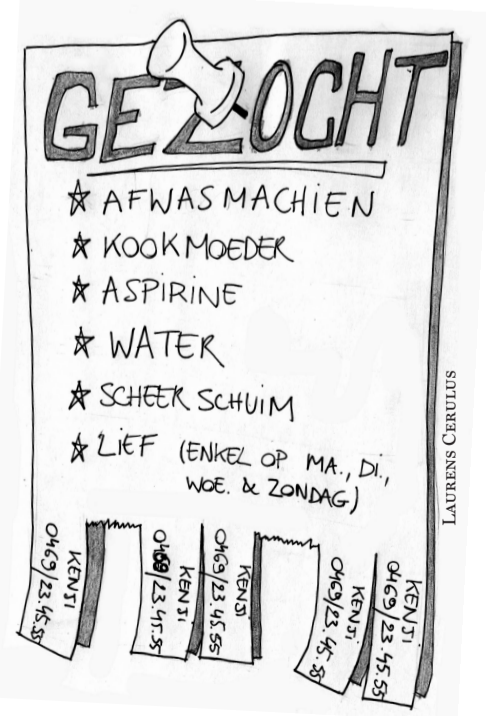 GEZOCHT
AFWASMACHIEN
KOOKMOEDER
ASPIRINE
WATER
SCHEERSCHUIM
LIEF (ENKEL OP MA., DI.,
WOE. & ZONDAG)
LAURENS CERULUS
KENJI
0469/23.45.55
KENJI
0469/23.45.55
KENJI
0469/23.45.55
KENJI
0469/23.45.55
KENJI
0469/23.45.55